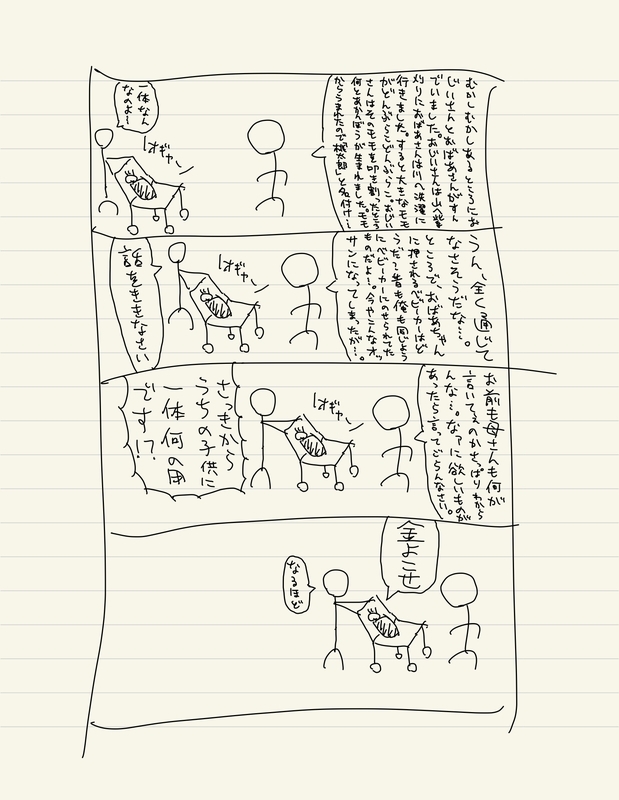 むかしむかしあるところにお
じいさんとおばあさんがすん
でいました。おじいさんは山へ柴
刈りにおばあさんは川へ洗濯に
行きました。すると大きなモモ
がどんぶらこどんぶらこ。おじい
さんはそのモモを叩き割ったところ
何とあかんぼうが生まれました。モモ
からうまれたので「桃太郎」と名付け…
オギャー
一体なん
なのよ〜
うん、全く通じて
なさそうだな…。
ところで、おばあちゃん
に押されるベビーカーはど
うだ？昔も俺も同じよう
にベビーカーにのせられてた
ものだよ！今やこんなオッ
サンになってしまったが…。
オギャー
話をききなさい
お前も母さんも何が
言いてぇのかさっぱりわから
んな…。なァに欲しいものが
あったら言ってごらんなさい。
オギャー
さっきから
うちの子供に
一体何の用
です!?
金よこせ
なるほど